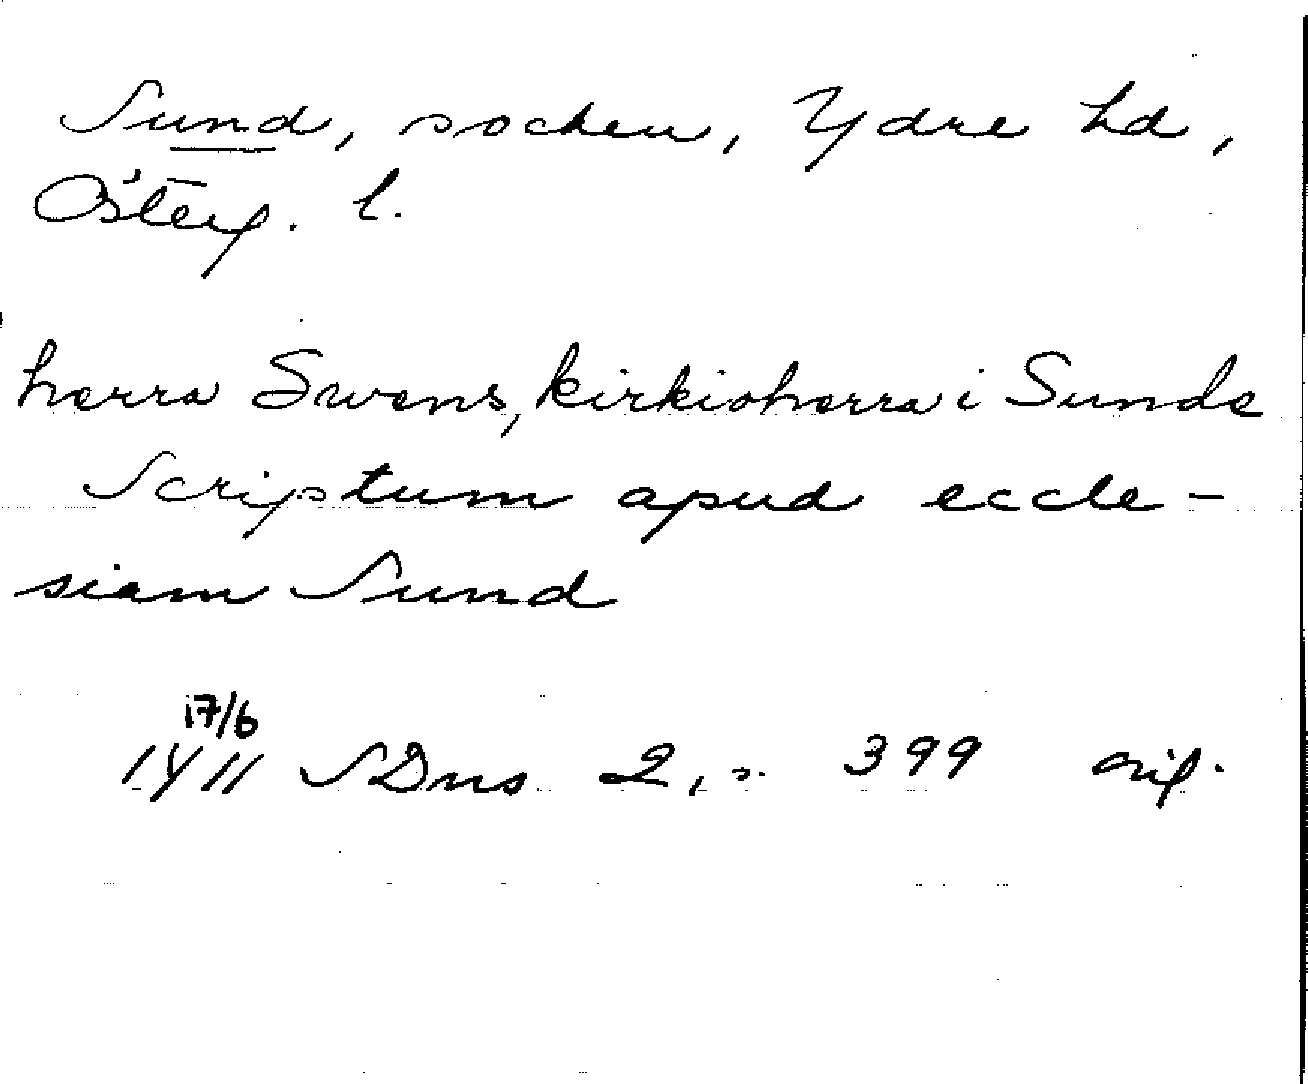 Sund, socken, Ydre hd,
Österg. l.
herra Swens, kirkioherra i Sunde
Scriptum apud eccle-
siam Sund
17/6
1411 SDns 2, s. 399 orig.